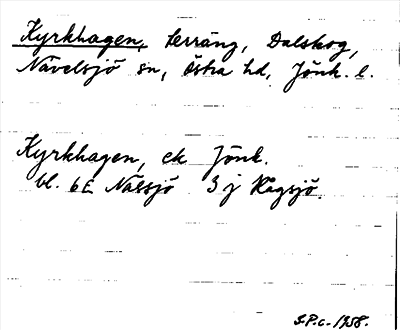 Kyrkhagen, terräng, Dalskog,
Nävelsjö sn, Östra hd, Jönk. l.
Kyrkhagen, ek Jönk.
bl. 6E Nässjö 3 j Rågsjö.
S.P.c. 1958.